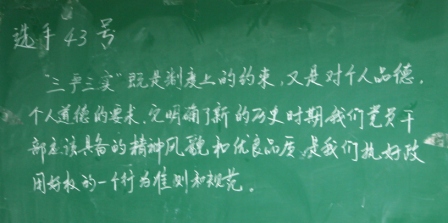 选手43号
"三严三实"既是制度上的约束,又是对个人品德,
个人道德的要求,它明确了新的历史时期我们党员干
部应该具备的精神风貌和优良品质,是我们执好政
用好权的一个行为准则和规范。